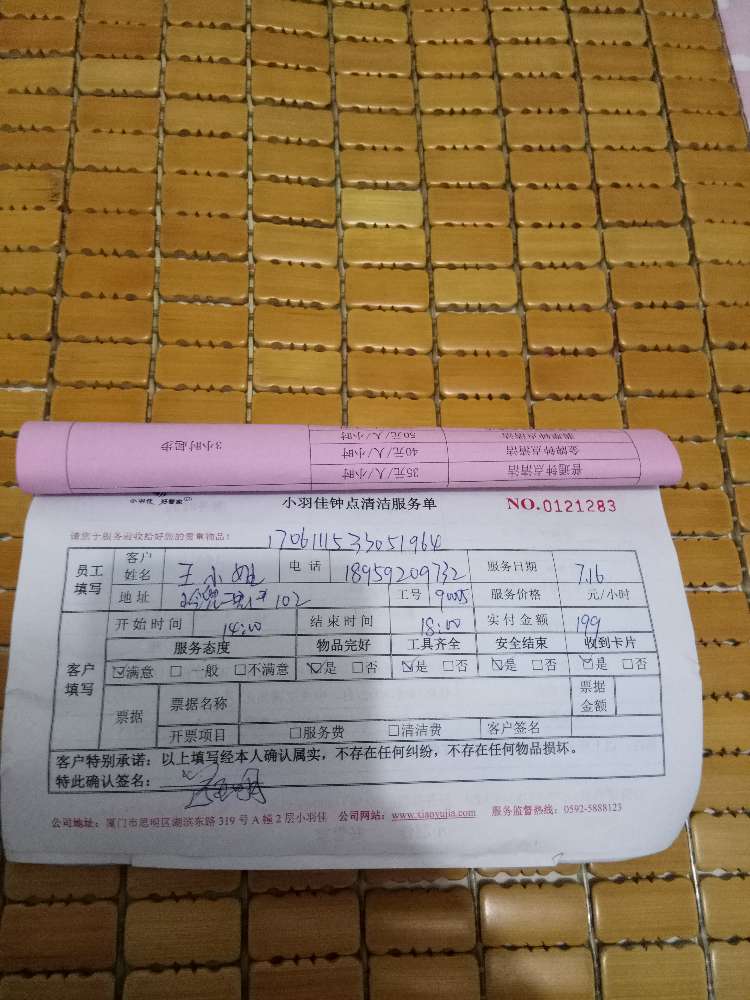 3小时起步
50元/人/小时
40元/人/小时
金牌钟点清洁
35元/人/小时
普通钟点清洁
小羽佳 好管家
小羽佳钟点清洁服务单
NO.0121283
请您于服务前收给好您的贵重物品!
1706111533051964
员工填写
客户姓名 王小姐 电话 18959209732 服务日期 7.16
地址 102 工号 9005 服务价格 元/小时
客户填写
开始时间 14:00 结束时间 18:00 实付金额 199
服务态度 物品完好 工具齐全 安全结束 收到卡片
☑满意 □一般 □不满意 ☑是 □否 ☑是 □否 ☑是 □否 ☑是 □否
票据 票据名称 票据金额
开票项目 □服务费 □清洁费 客户签名
客户特别承诺:以上填写经本人确认属实,不存在任何纠纷,不存在任何物品损坏。
特此确认签名:
公司地址:厦门市思明区湖滨东路319号A幢2层小羽佳 公司网站:www.xiaoyujia.com 服务监督热线:0592-5888123